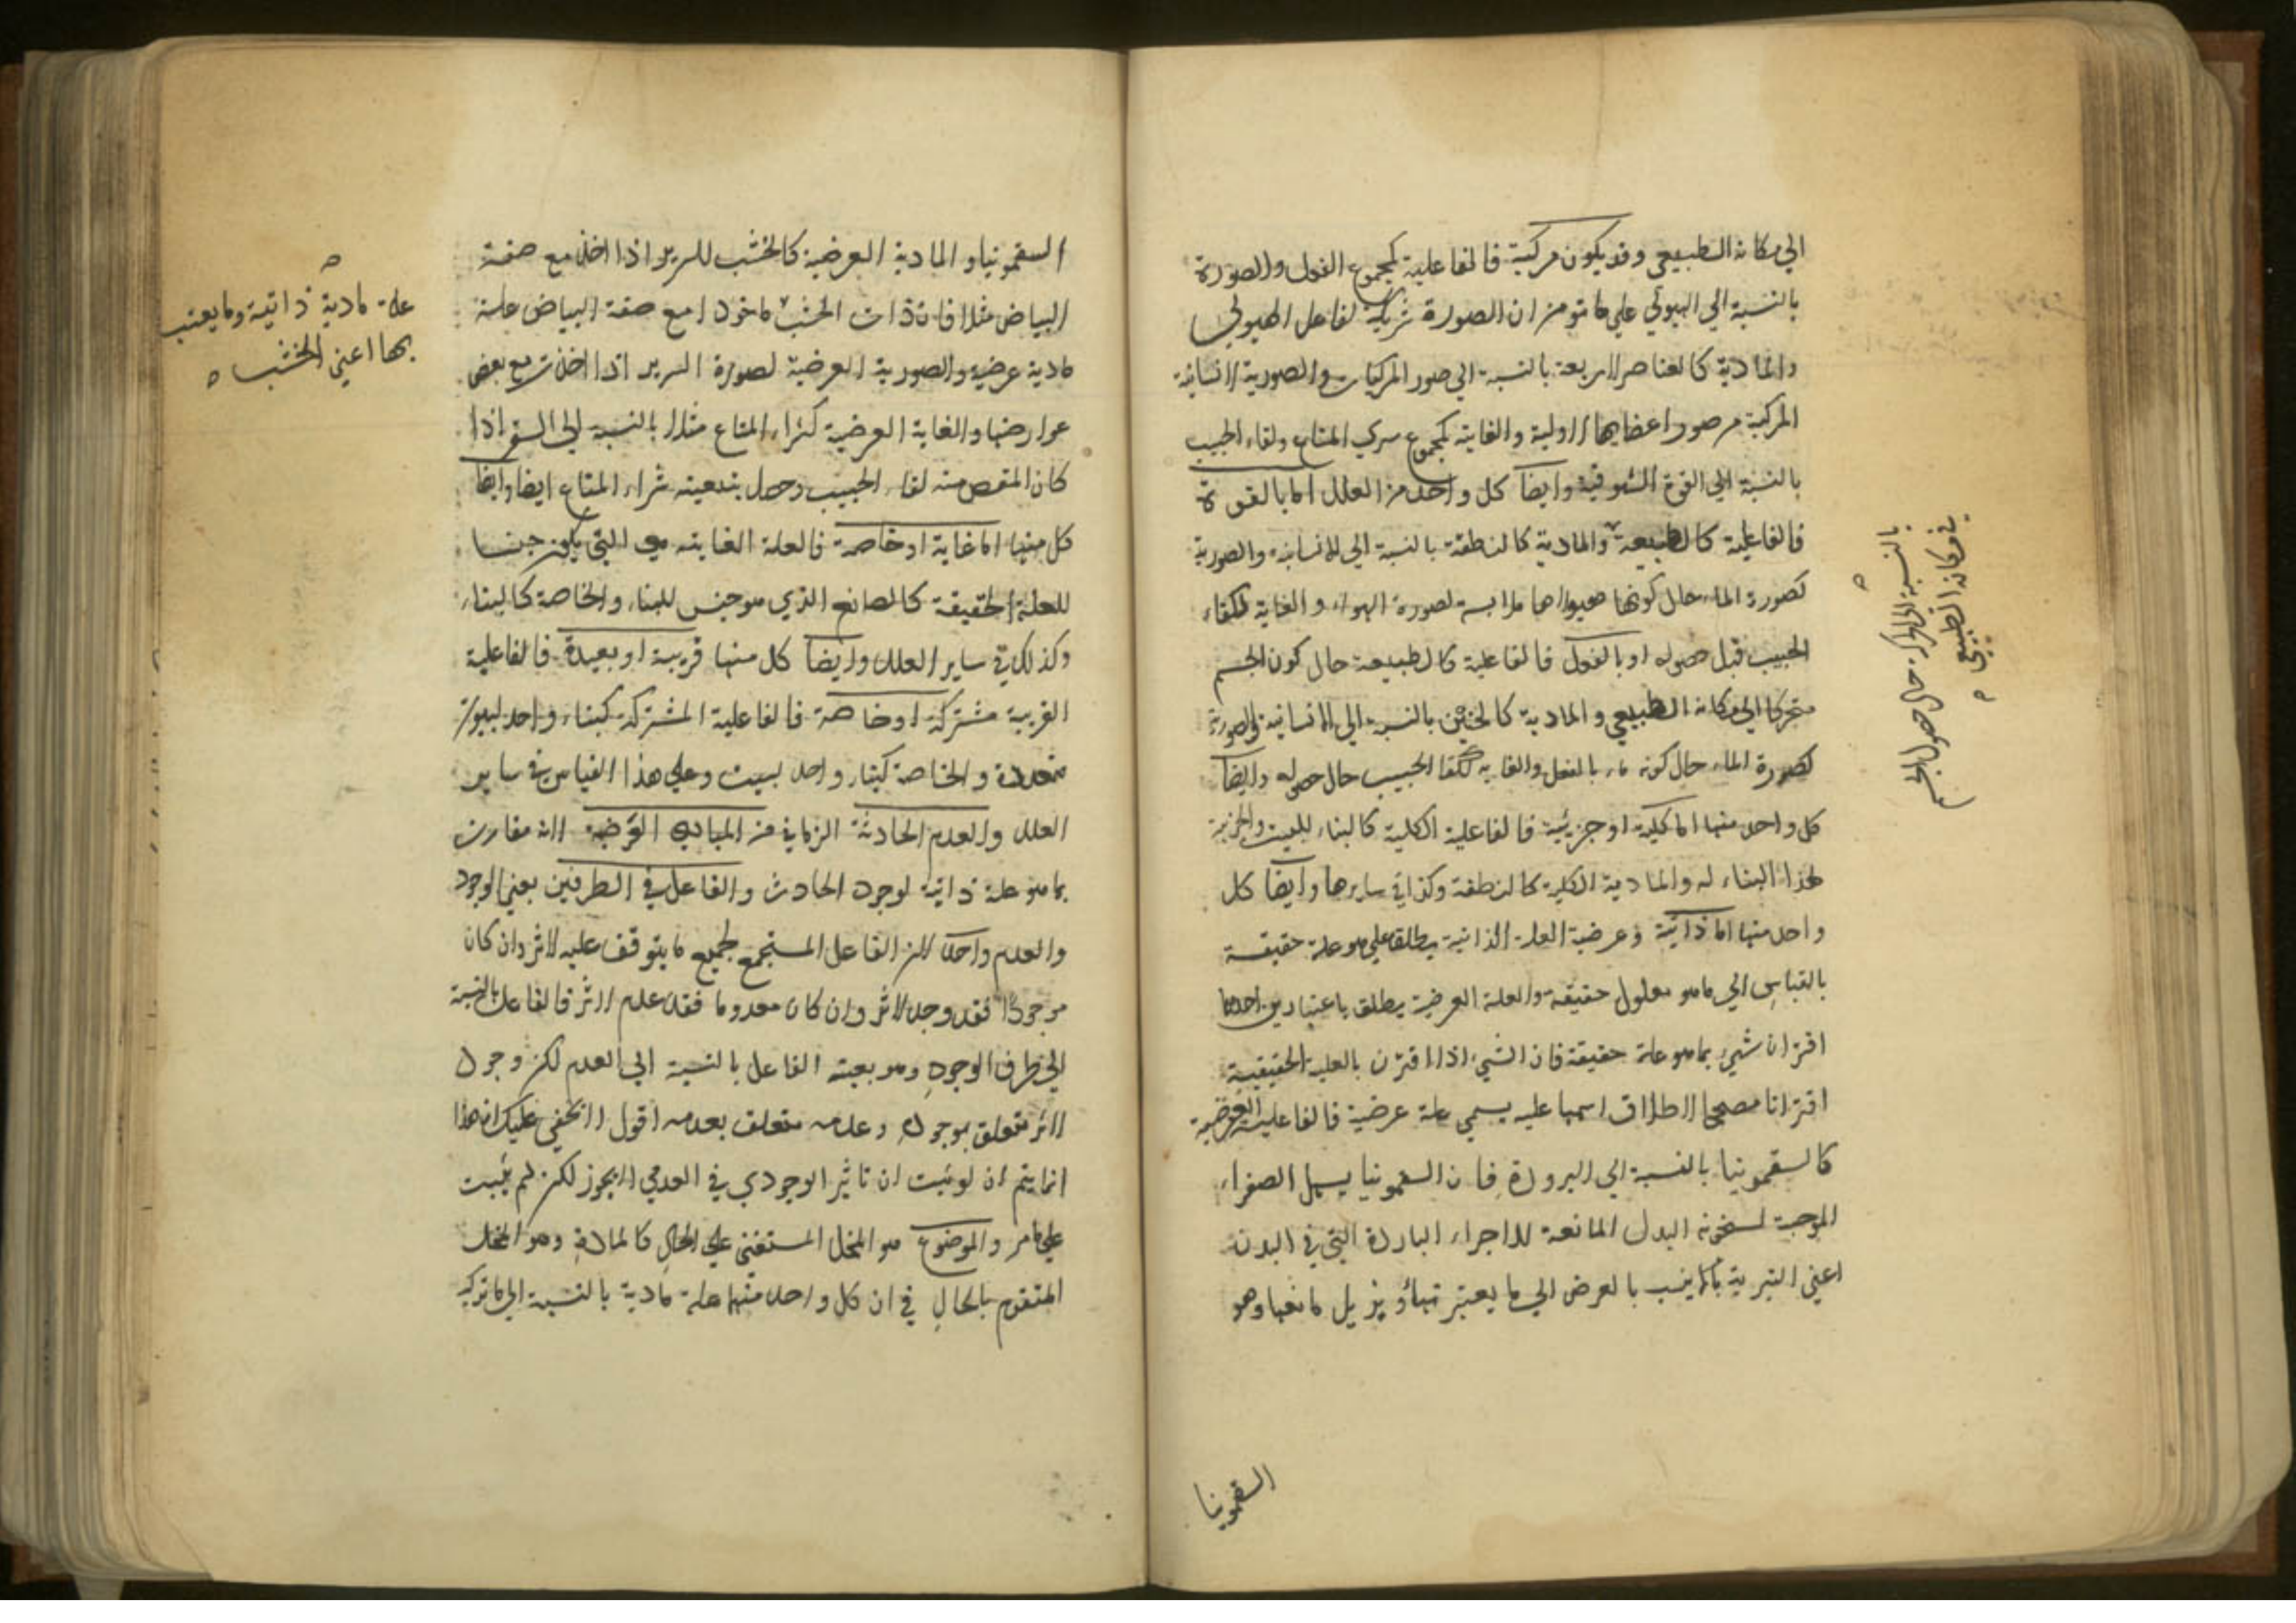 الي مكانه الطبيعي وقد يكون مركبة فالفاعلية كمجموع الفعل والصورة
بالنسبة الي الهيولي علي ما مر من ان الصورة شريكة لفاعل الهيولي
والمادية كالعناصر الاربعة بالنسبة الي صور المركبات والصورية الانسانية
المركبة من صور اعضايها الاولية والغاية كمجموع شري المتاع ولقاء الحبيب
بالنسبة الي القوة الشوقية وايضا كل واحد من العلل اما بالقوة
فالفاعلية كالطبيعة والمادية كالنطفة بالنسبة الي الانسانية والصورية
كصورة الماء حال كون هيولاها ملابسة لصورة الهواء والغاية كلقاء
الحبيب قبل حصوله او بالفعل فالفاعلية كالطبيعة حال كون الجسم
متحركا الي مكانه الطبيعي والمادية كالجنين بالنسبة الي الانسانية والصورية
كصورة الماء حال كونه ماء بالفعل والغاية كلقا الحبيب حال حصوله وايضا
كل واحد منها اما كلية او جزئية فالفاعلية الكلية كالبناء للبيت والجزئية
لهذا البناء له والمادية الكلية كالنطفة وكذا في سايرها وايضا كل
واحد منها اما ذاتية وعرضية العلة الذاتية يطلق علي ما هو علة حقيقة
بالقياس الي ما هو معلول حقيقة والعلة العرضية يطلق باعتبارين احدهما
اقتران شيء بما هو علة حقيقة فان الشيء اذا اقترن بالعلية الحقيقية
اقترانا مصححا لاطلاق اسمها عليه يسمي علة عرضية فالفاعلية العرضية
كالسقمونيا بالنسبة الي البرودة فان السقمونيا يسهل الصفراء
الموجبة لسخونة البدن المانعة للاجزاء الباردة التي في البدن
اعني التبريد ينسب بالعرض الي ما يزيل مانعها وهو
السقمونيا
بالنسبة الي الحركة حال حصول الجسم
في مكانه الطبيعي
السقمونيا والمادية العرضية كالخشب للسرير اذا اخذ مع صفة
البياض مثلا فان ذات الخشب ماخوذا مع صفة البياض علة
مادية عرضية والصورية العرضية لصورة السرير اذا اخذت مع بعض
عوارضها والغاية العرضية كشراء المتاع مثلا بالنسبة الي السفر اذا
كان المقصود منه لقاء الحبيب وحصل بتبعيته شراء المتاع ايضا وايضا
كل منها اما عامة او خاصة فالعلة العامة هي التي يكون جنسا
للعلة الحقيقة كالصانع الذي هو جنس للبناء والخاصة كالبناء
وكذلك في ساير العلل وايضا كل منها قريبة او بعيدة فالفاعلية
القريبة مشتركة او خاصة فالفاعلية المشتركة كبناء واحد لبيوت
متعددة والخاصة كبناء واحد لبيت وعلي هذا القياس في ساير
العلل والعدم الحادثة الزماني من المبادي العرضية لانه مقارن
بما هو علة ذاتية لوجود الحادث والفاعل في الطرفين يعني الوجود
والعدم واحد لان الفاعل المستجمع لجميع ما يتوقف عليه الاثر وان كان
موجودا فقد وجد الاثر وان كان معدوما فقد عدم الاثر فالفاعل بالنسبة
الي طرف الوجود هو بعينه الفاعل بالنسبة الي العدم لكن وجود
الاثر متعلق بوجوده وعدمه متعلق بعدمه اقول لا يخفي عليك ان هذا
انما يتم ان لو ثبت ان تاثير الوجودي في العدمي لا يجوز لكن لم يثبت
علي ما مر والموضوع هو المحل المستغني علي الحال كالمادة وهو المحل
المتقوم بالحال في ان كل واحد منهما علة مادية بالنسبة الي ما تركب
علة مادية ذاتية وما يعتبر
بها اعني الخشب